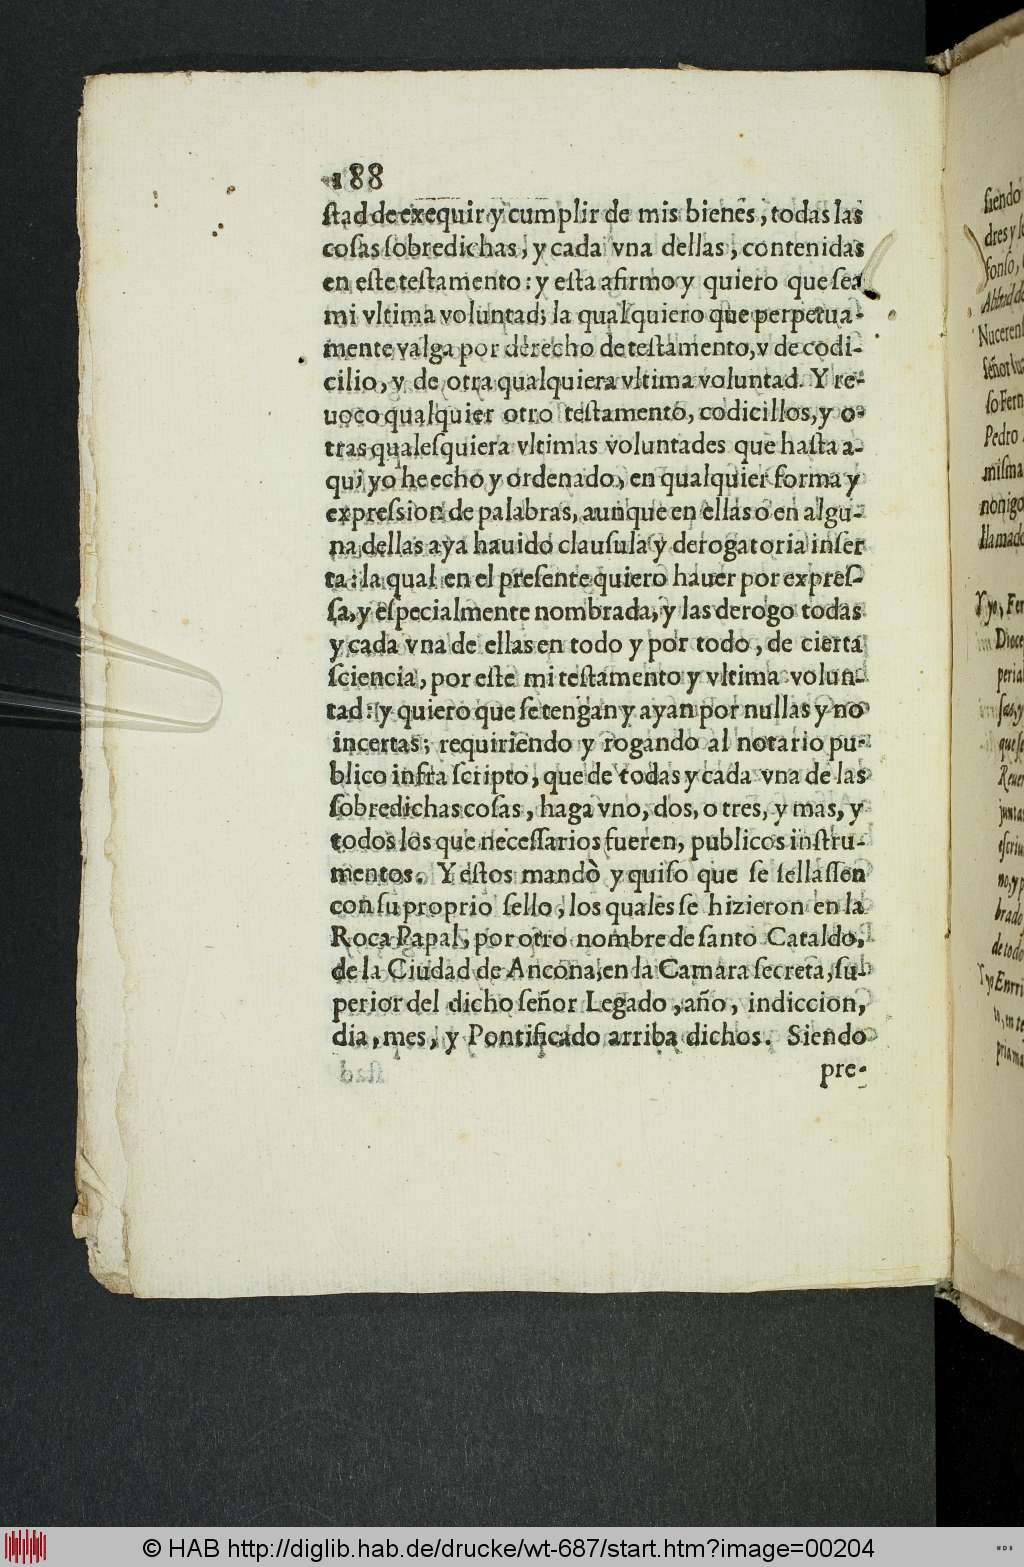 188
ſtad de exequir y cumplir de mis bienes, todas las
coſas ſobredichas, y cada vna dellas, contenidas
en eſte teſtamento: y eſta afirmo y quiero que ſea
mi vltima voluntad; la qual quiero que perpetua-
mente valga por derecho de teſtamento, v de codi-
cilio, v de otra qualquiera vltima voluntad. Y re-
uoco qualquier otro teſtamento, codicillos, y o-
tras qualeſquiera vltimas voluntades que haſta a-
qui yo he echo y ordenado, en qualquier forma y
expreſsion de palabras, aunque en ellas o en algu-
na dellas aya hauido clauſula y derogatoria inſer
ta: la qual en el preſente quiero hauer por expreſ-
ſa, y eſpecialmente nombrada, y las derogo todas
y cada vna de ellas en todo y por todo, de cierta
ſciencia, por eſte mi teſtamento y vltima volun-
tad: y quiero que ſe tengan y ayan por nullas y no
incertas; requiriendo y rogando al notario pu-
blico infra ſcripto, que de todas y cada vna de las
ſobredichas coſas, haga vno, dos, o tres, y mas, y
todos los que neceſſarios fueren, publicos inſtru-
mentos. Y eſtos mandò y quiſo que ſe ſellaſſen
con ſu proprio ſello, los quales ſe hizieron en la
Roca Papal, por otro nombre de ſanto Cataldo,
de la Ciudad de Ancona, en la Camara ſecreta, ſu-
perior del dicho ſeñor Legado, año, indiccion,
dia, mes, y Pontificado arriba dichos. Siendo
pre-
ſiendo
dres y
fonſo,
Abbad de
Nuceren
ſeñor
ſo Fern
Pedro
miſma
nonigo
llamado
Y yo, Fer
Dioce
peria
ſas, y
que ſe
Reuer
junta
eſcriu
no, y p
brado
de todo
Y yo Enrri
pria ma
© HAB http://diglib.hab.de/drucke/wt-687/start.htm?image=00204